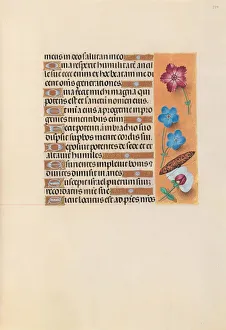 meus in deo salutari meo
Quia respexit humilitatem ancil
le sue ecce enim ex hoc beatam me di
cent omnes generationes.
Quia fecit michi magna qui
potens est et sanctum nomen eius.
Et misericordia eius a progenie in pro
genies timentibus eum
Fecit potentiam in brachio suo
dispersit superbos mente cordis sui.
Deposuit potentes de sede et ex
altavit humiles
Esurientes implevit bonis et
divites dimisit inanes
Suscepit israel puerum suum
recordatus misericordie sue
Sicut locutus est ad patres nros